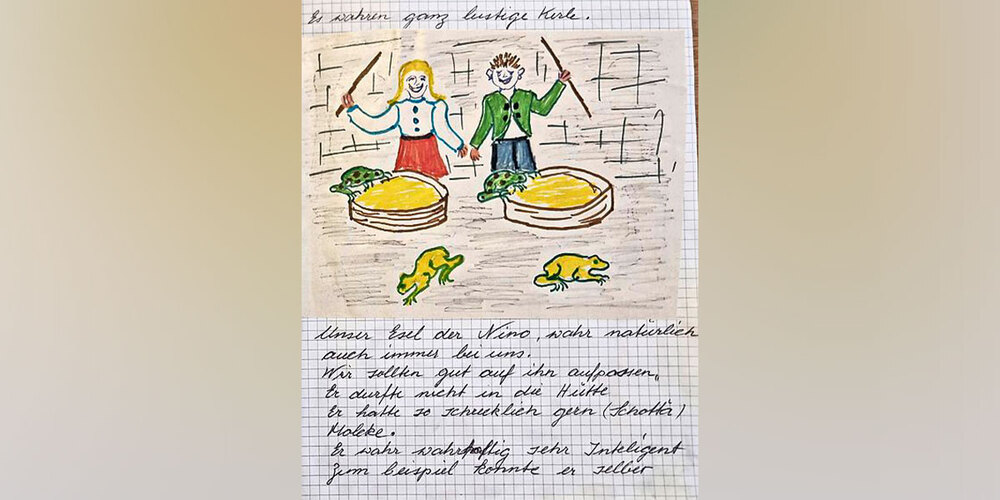 Es wahren ganz lustige Kerle.
Unser Esel der Nino, wahr natürlich
auch immer bei uns.
Wir sollten gut auf ihn aufpassen,
Er durfte nicht in die Hütte
Er hatte so schrecklich gern (Schotta)
Moleke.
Er wahr wahrhaftig sehr Inteligent
Zum beispiel konnte er selber